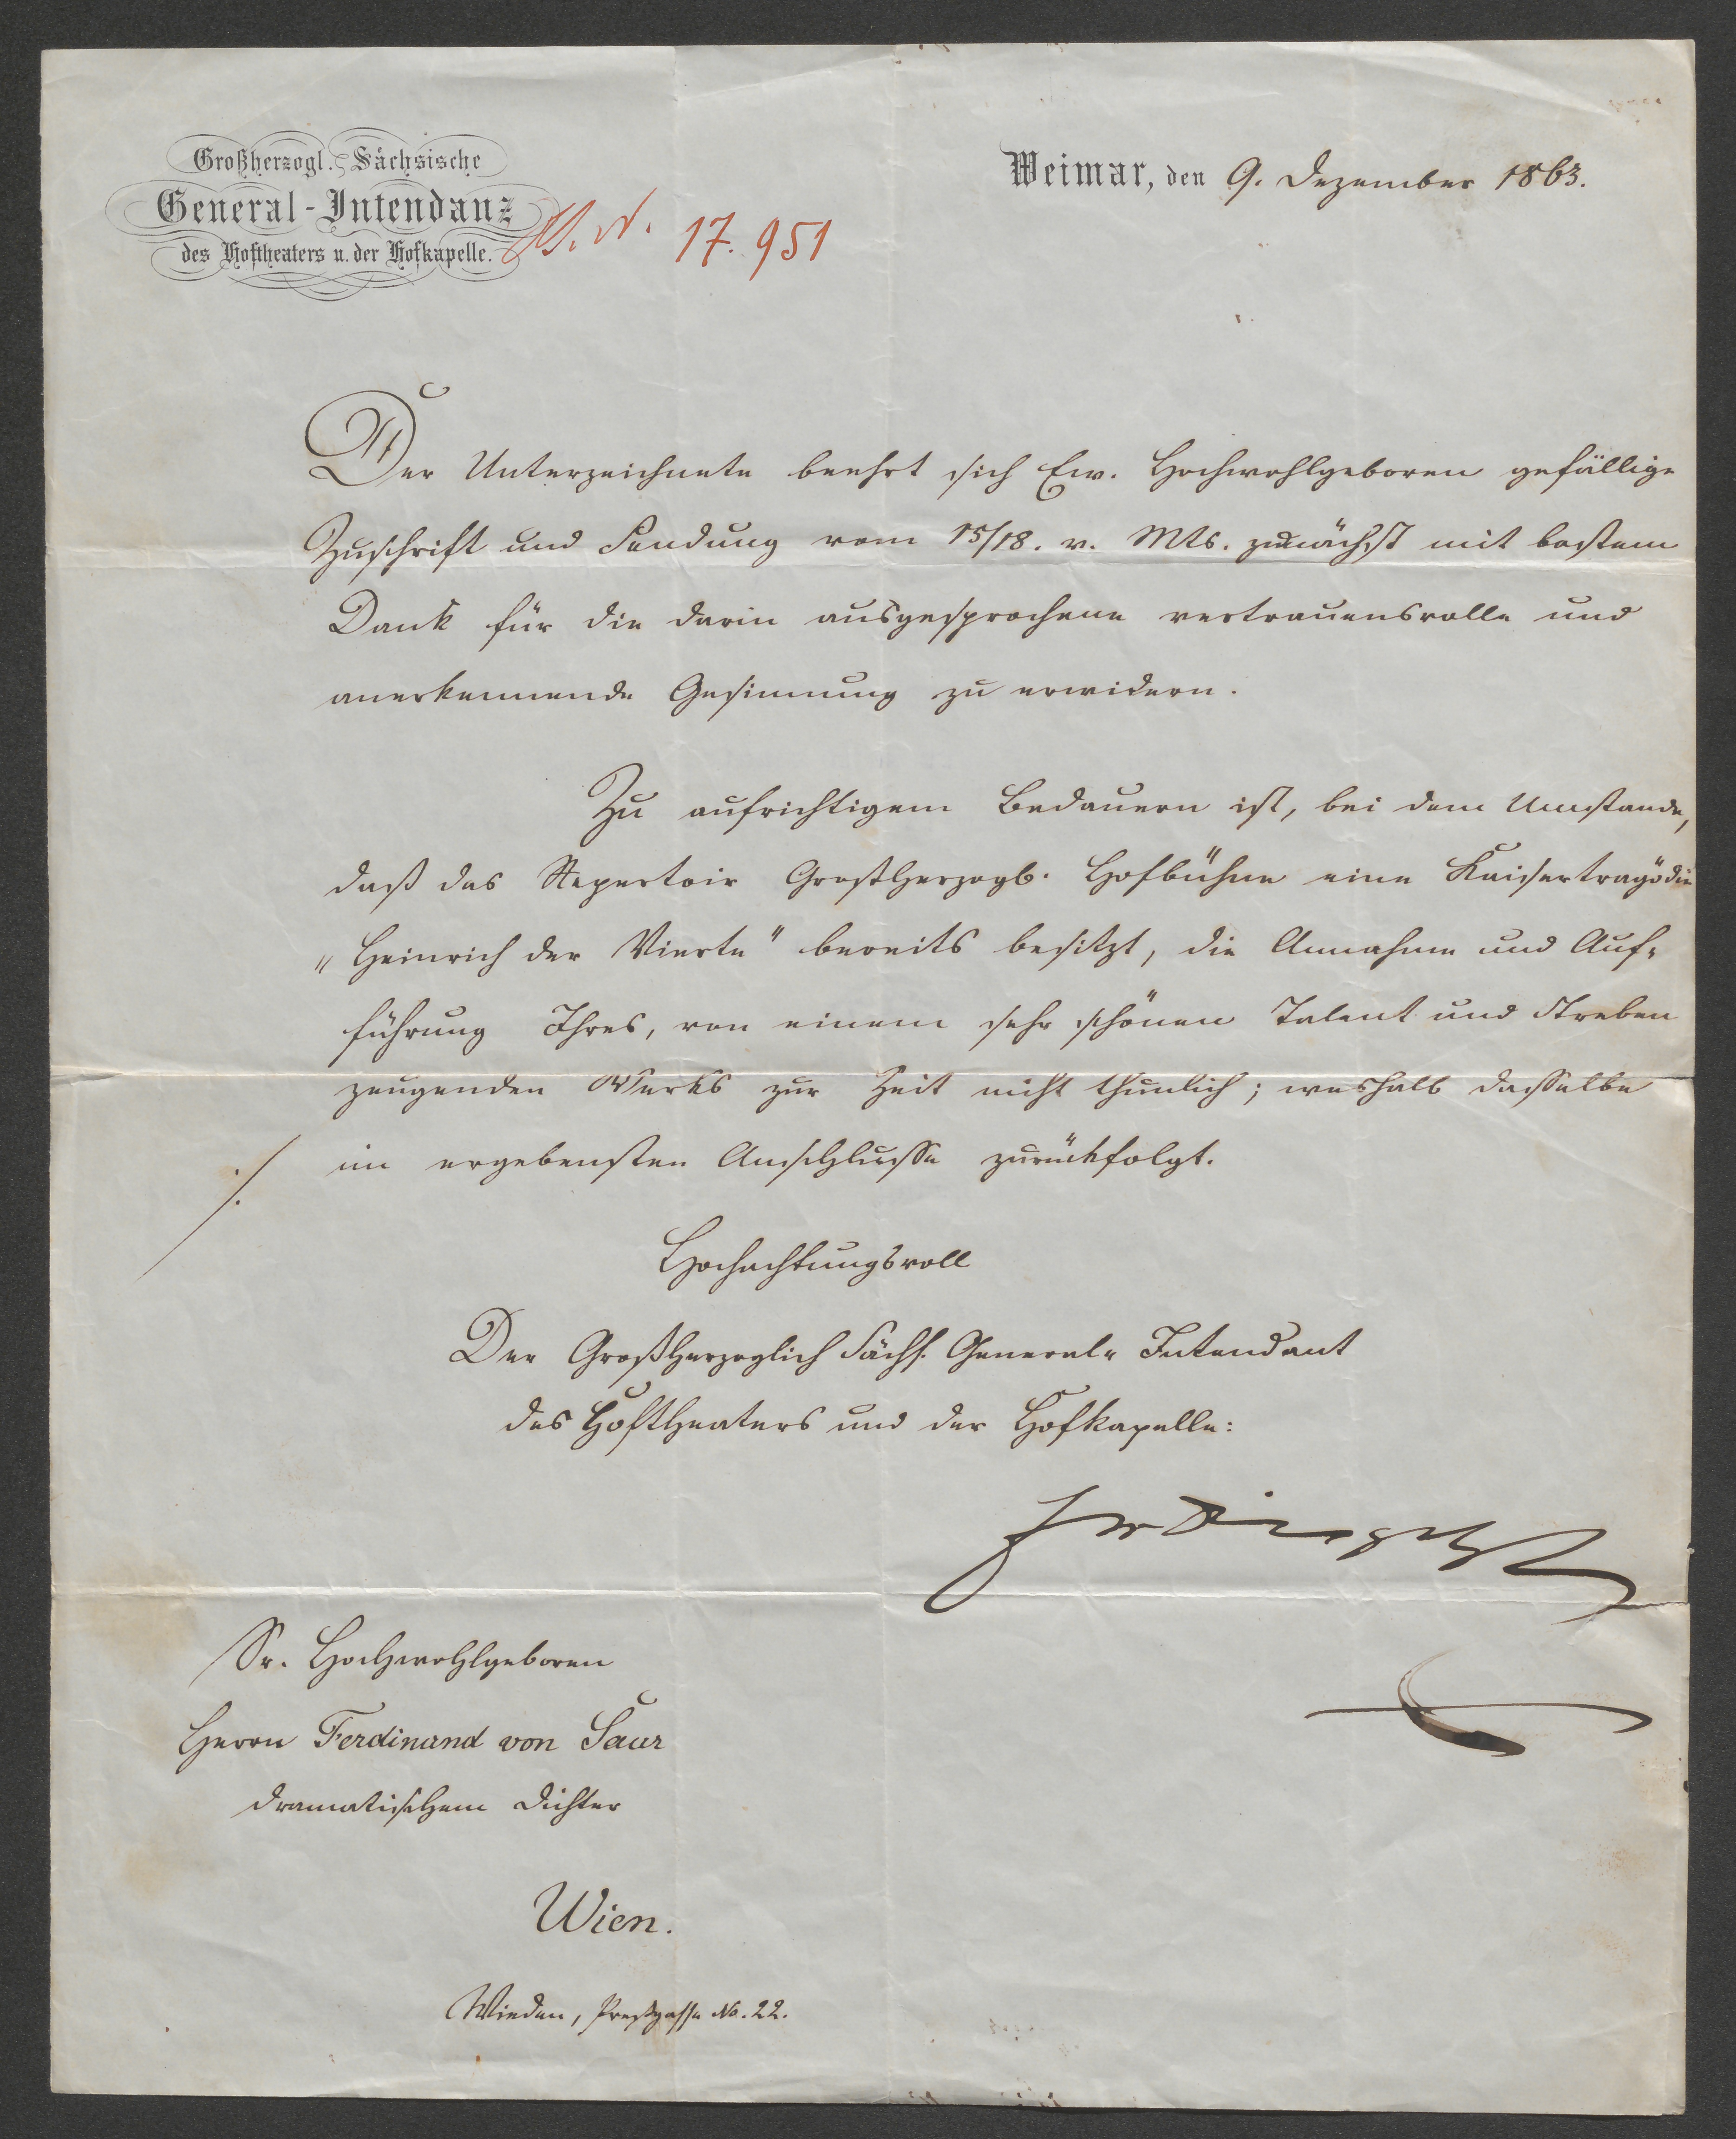 Großherzogl. Sächsische
General-Intendanz
des Hoftheaters u. der Hofkapelle.
17.951
Weimar, den 9. Dezember 1863.
Der Unterzeichnete beehrt sich Ew. Hochwohlgeboren gefällige
Zuschrift und Sendung vom 15/18. v. Mts. zunächst mit bestem
Dank für die darin ausgesprochene vertrauensvolle und
anerkennende Gesinnung zu erwidern.
Zu aufrichtigem Bedauern ist, bei dem Umstande,
daß das Repertoir Großherzogl. Hofbühne eine Kaisertragödie
„Heinrich der Vierte" bereits besitzt, die Annahme und Auf-
führung Ihres, von einem sehr schönen Talent und Streben
zeugenden Werks zur Zeit nicht thunlich; weshalb dasselbe
./. im ergebensten Anschlusse zurückfolgt.
Hochachtungsvoll
Der Großherzoglich Sächs. General-Intendant
des Hoftheaters und der Hofkapelle:
Sr. Hochwohlgeboren
Herrn Ferdinand von Saar
dramatischem Dichter
Wien.
Wieden, Preßgasse No. 22.